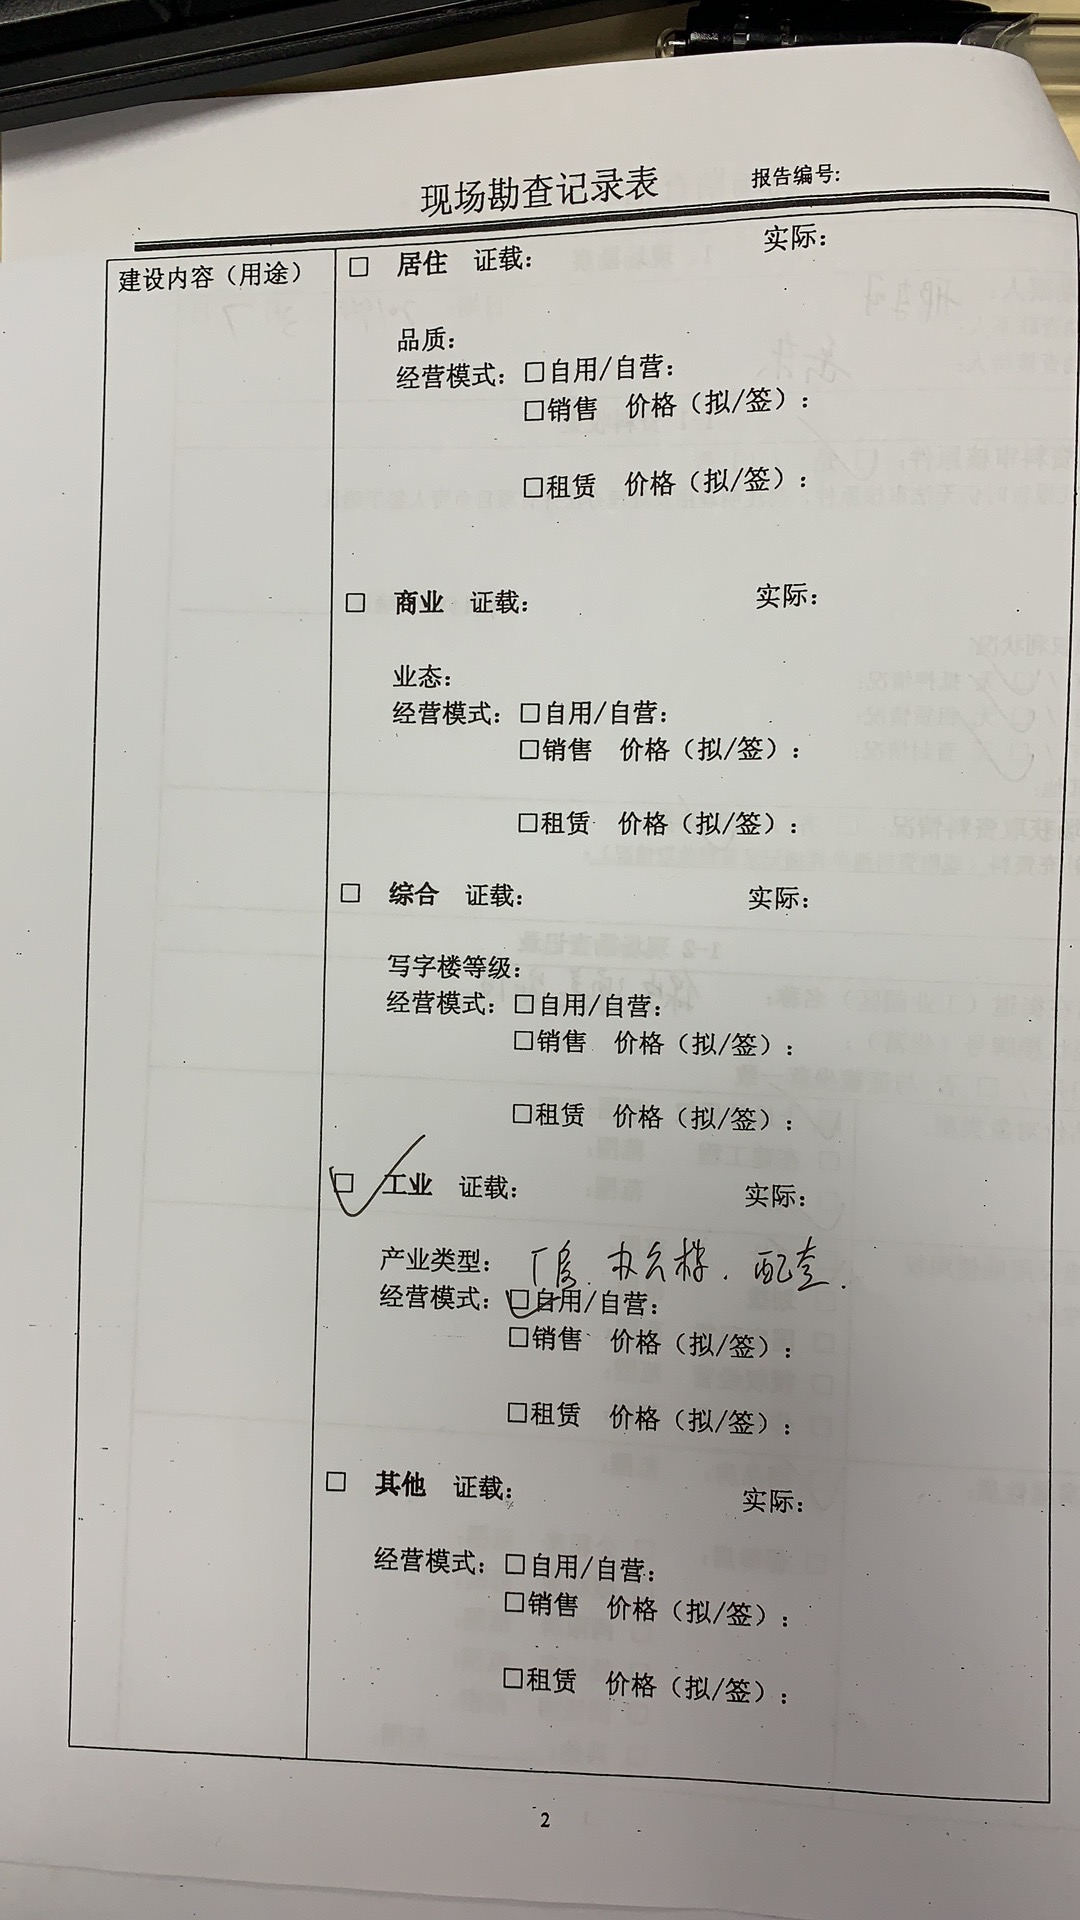 现场勘查记录表 报告编号:
建设内容（用途）
□ 居住 证载： 实际：
品质：
经营模式：□自用/自营：
□销售 价格（拟/签）：
□租赁 价格（拟/签）：
□ 商业 证载： 实际：
业态：
经营模式：□自用/自营：
□销售 价格（拟/签）：
□租赁 价格（拟/签）：
□ 综合 证载： 实际：
写字楼等级：
经营模式：□自用/自营：
□销售 价格（拟/签）：
□租赁 价格（拟/签）：
☑ 工业 证载： 实际：
产业类型：厂房、办公楼、配套.
经营模式：☑自用/自营：
□销售 价格（拟/签）：
□租赁 价格（拟/签）：
□ 其他 证载： 实际：
经营模式：□自用/自营：
□销售 价格（拟/签）：
□租赁 价格（拟/签）：
2